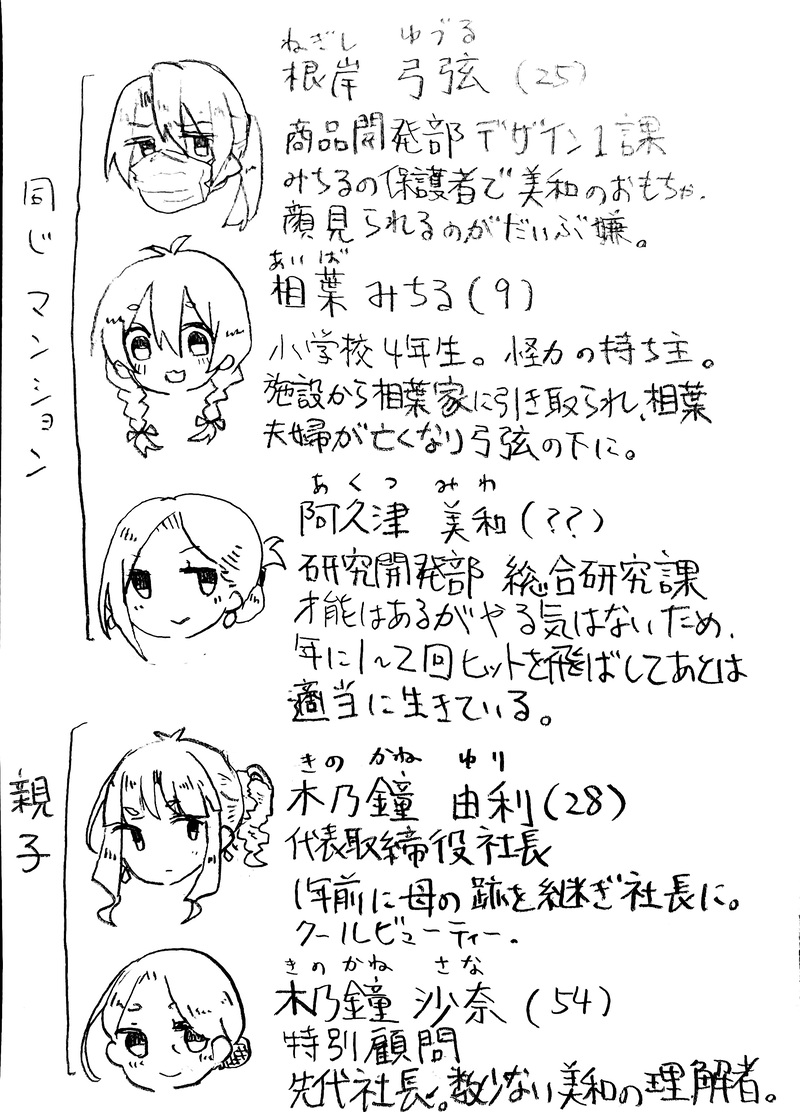 同じマンション
ねぎし ゆづる
根岸 弓弦(25)
商品開発部デザイン1課
みちるの保護者で美和のおもちゃ.
顔見られるのがだいぶ嫌。
あいば
相葉みちる(9)
小学校4年生。怪力の持ち主。
施設から相葉家に引き取られ、相葉
夫婦が亡くなり弓弦の下に。
あくつ みわ
阿久津 美和(??)
研究開発部 総合研究課
才能はあるがやる気はないため、
年に1~2回ヒットを飛ばしてあとは
適当に生きている。
親子
きのかね ゆり
木乃鐘 由利(28)
代表取締役社長
1年前に母の跡を継ぎ社長に。
クールビューティー.
きのかね さな
木乃鐘 沙奈(54)
特別顧問
先代社長。数少ない美和の理解者。